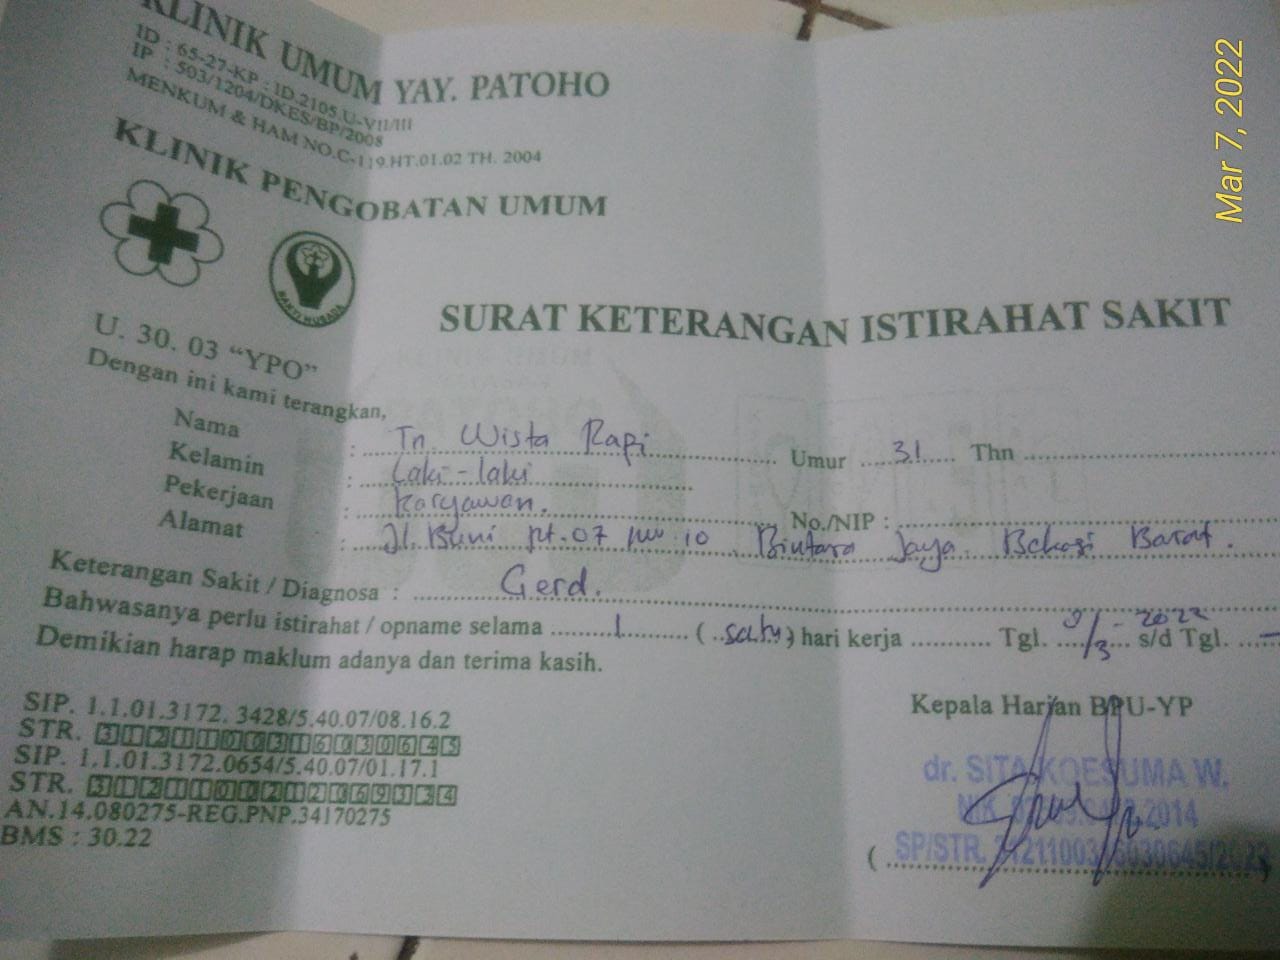 KLINIK UMUM YAY. PATOHO
ID : 65-27-KP : ID.2105.U-VII/III
IP : 503/1204/DKES/BP/2008
MENKUM & HAM NO.C-119.HT.01.02 TH. 2004
KLINIK PENGOBATAN UMUM
BAKTI HUSADA
SURAT KETERANGAN ISTIRAHAT SAKIT
U. 30. 03 “YPO”
Dengan ini kami terangkan,
Nama : Tn. Wista Rapi Umur 31 Thn
Kelamin : Laki-laki
Pekerjaan : Karyawan. No./NIP :
Alamat : Jl. Buni rt. 07 rw 10 Bintara Jaya. Bekasi Barat.
Keterangan Sakit / Diagnosa : Gerd.
Bahwasanya perlu istirahat / opname selama 1 (satu) hari kerja Tgl. /3 - 2022 s/d Tgl. -
Demikian harap maklum adanya dan terima kasih.
SIP. 1.1.01.3172. 3428/5.40.07/08.16.2
STR.
SIP. 1.1.01.3172.0654/5.40.07/01.17.1
STR.
AN.14.080275-REG.PNP.34170275
BMS : 30.22
Kepala Harian BPU-YP
dr. SITA KOESUMA W.
NIK. 2014
SP/STR.
Mar 7, 2022